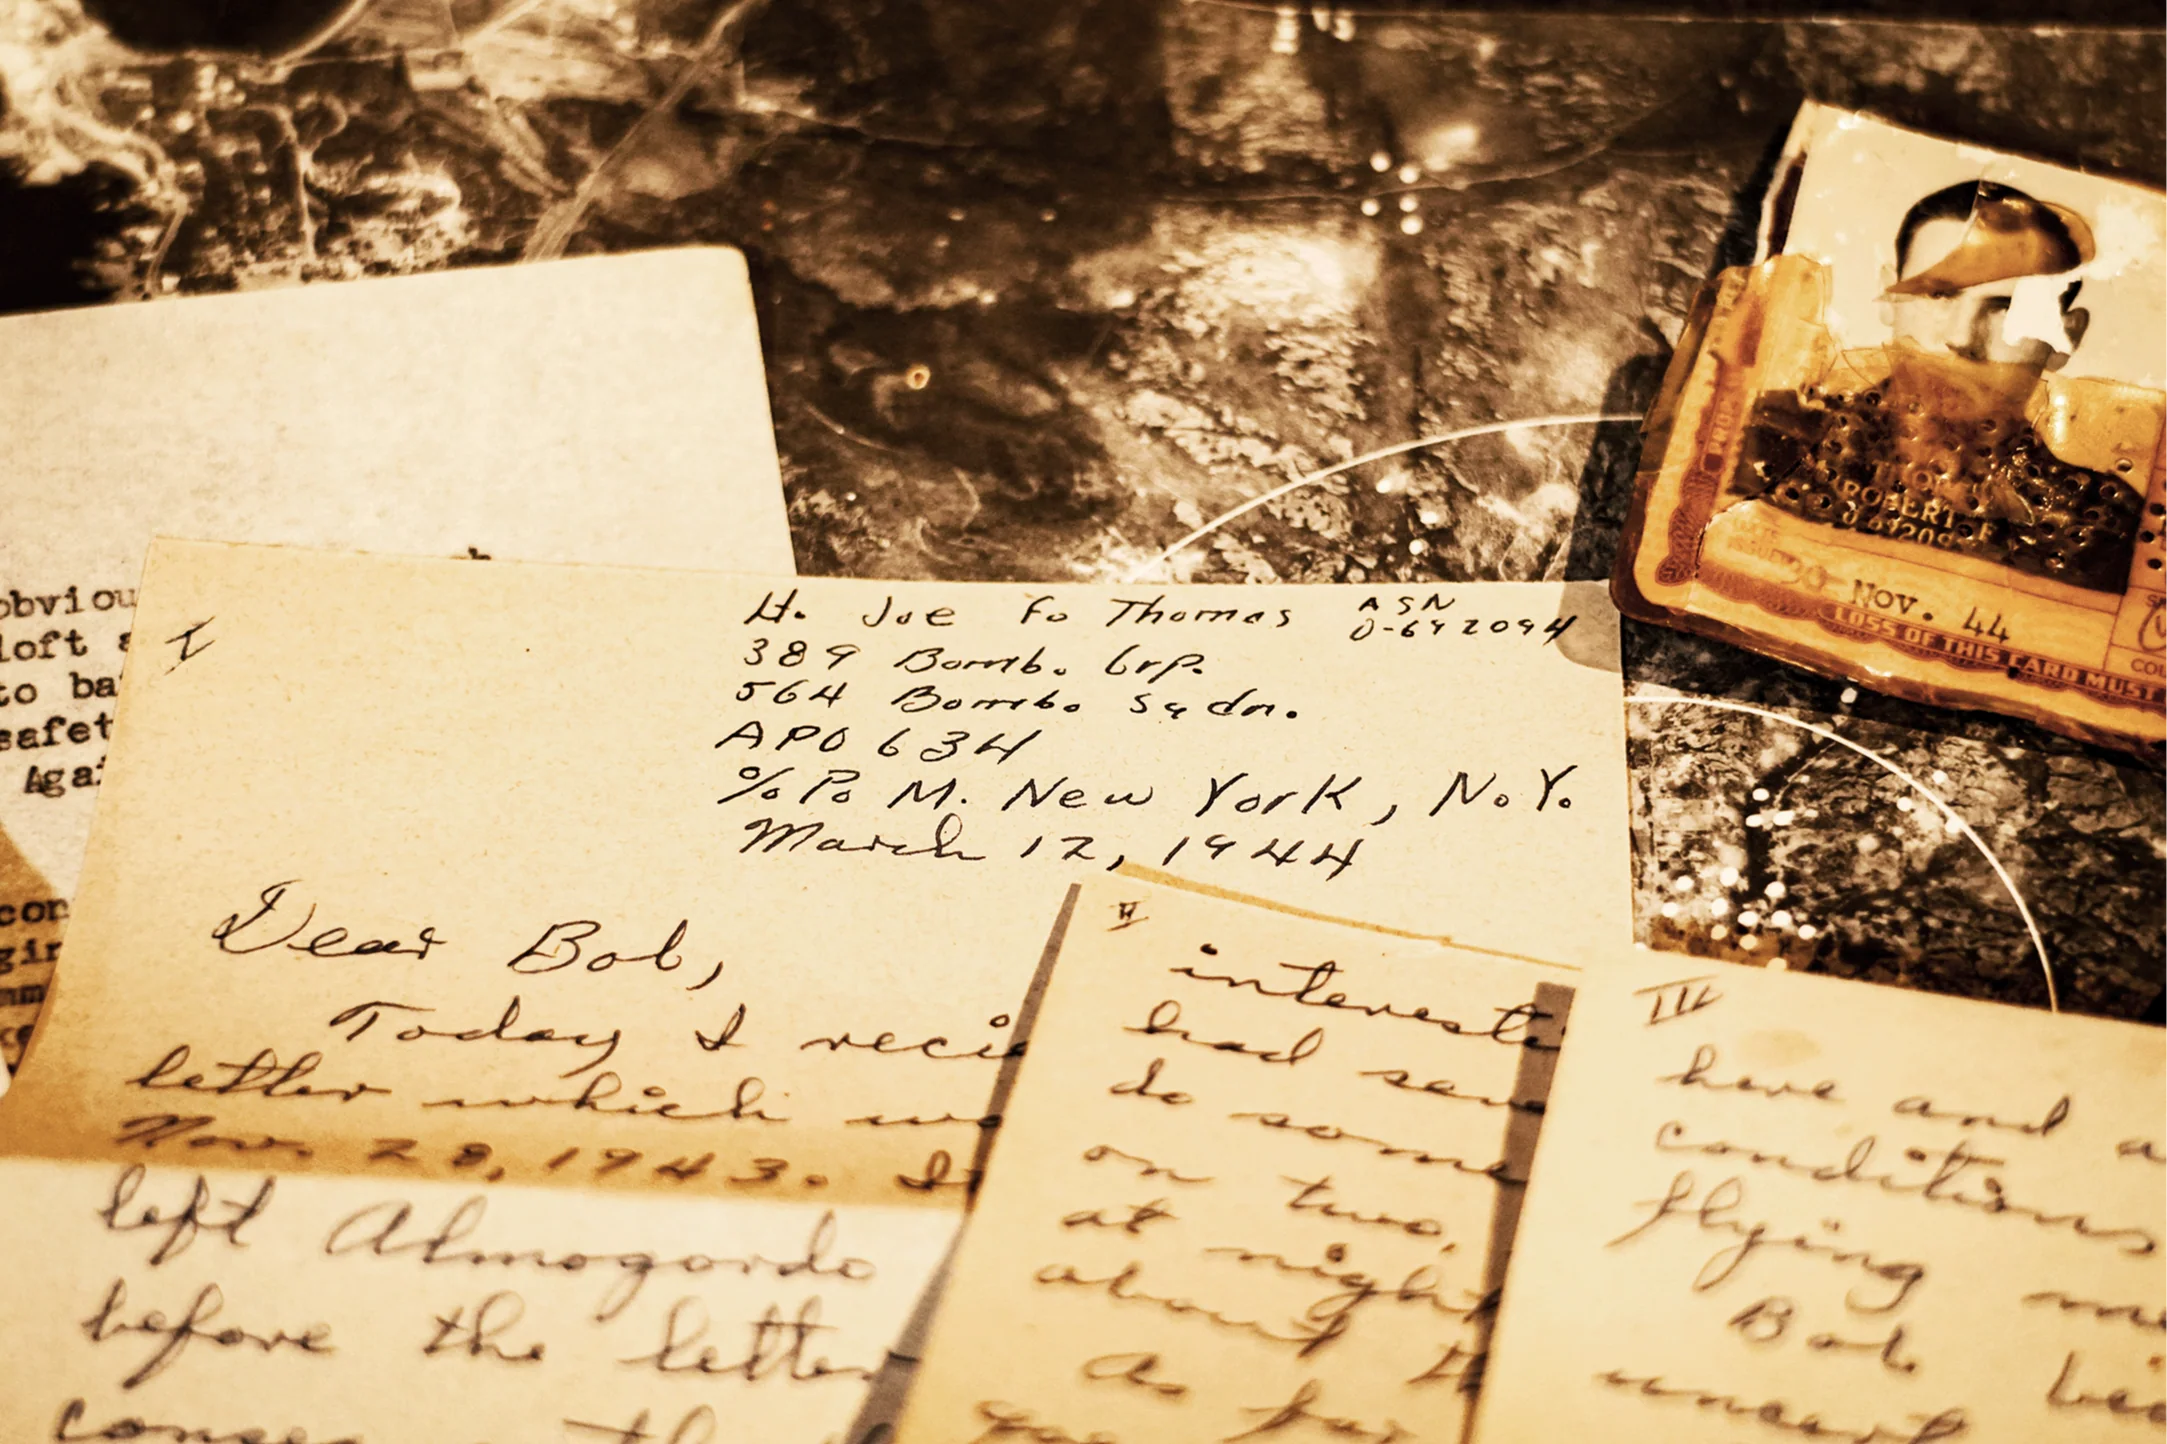 obviou
loft a
to ba
safet
Agai
con
gin
I
Lt. Joe F. Thomas ASN
O-692094
389 Bomb. Grp.
564 Bomb. Sqdn.
APO 634
% P. M. New York, N.Y.
March 12, 1944
Dear Bob,
Today I recie
letter which wa
Nov. 28, 1943. I
left Almogordo
before the letter
II
intereste
had sav
do some
on two,
at night
about
As far
III
here and a
conditions
flying
Bob
uncert
ROBERT F
30 Nov. 44
LOSS OF THIS CARD MUST